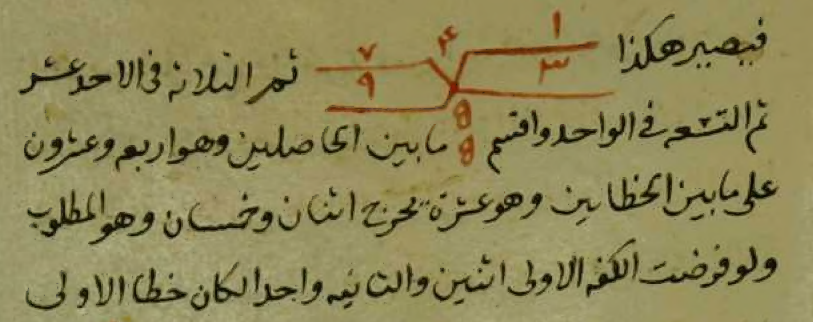 فيصير هكذا ١ ۴ ٧ ثم الثلاثه فى الاحد عشر
٣ ٩
ثم التسعه فى الواحد واقسم ما بين الحاصلين وهو اربعه وعشرون
على ما بين الخطاين وهو عشرة يخرج اثنان وخمسان وهو المطلوب
ولو فرضت الكفه الاولى اثنين والثانيه واحدا لكان خطا الاولى